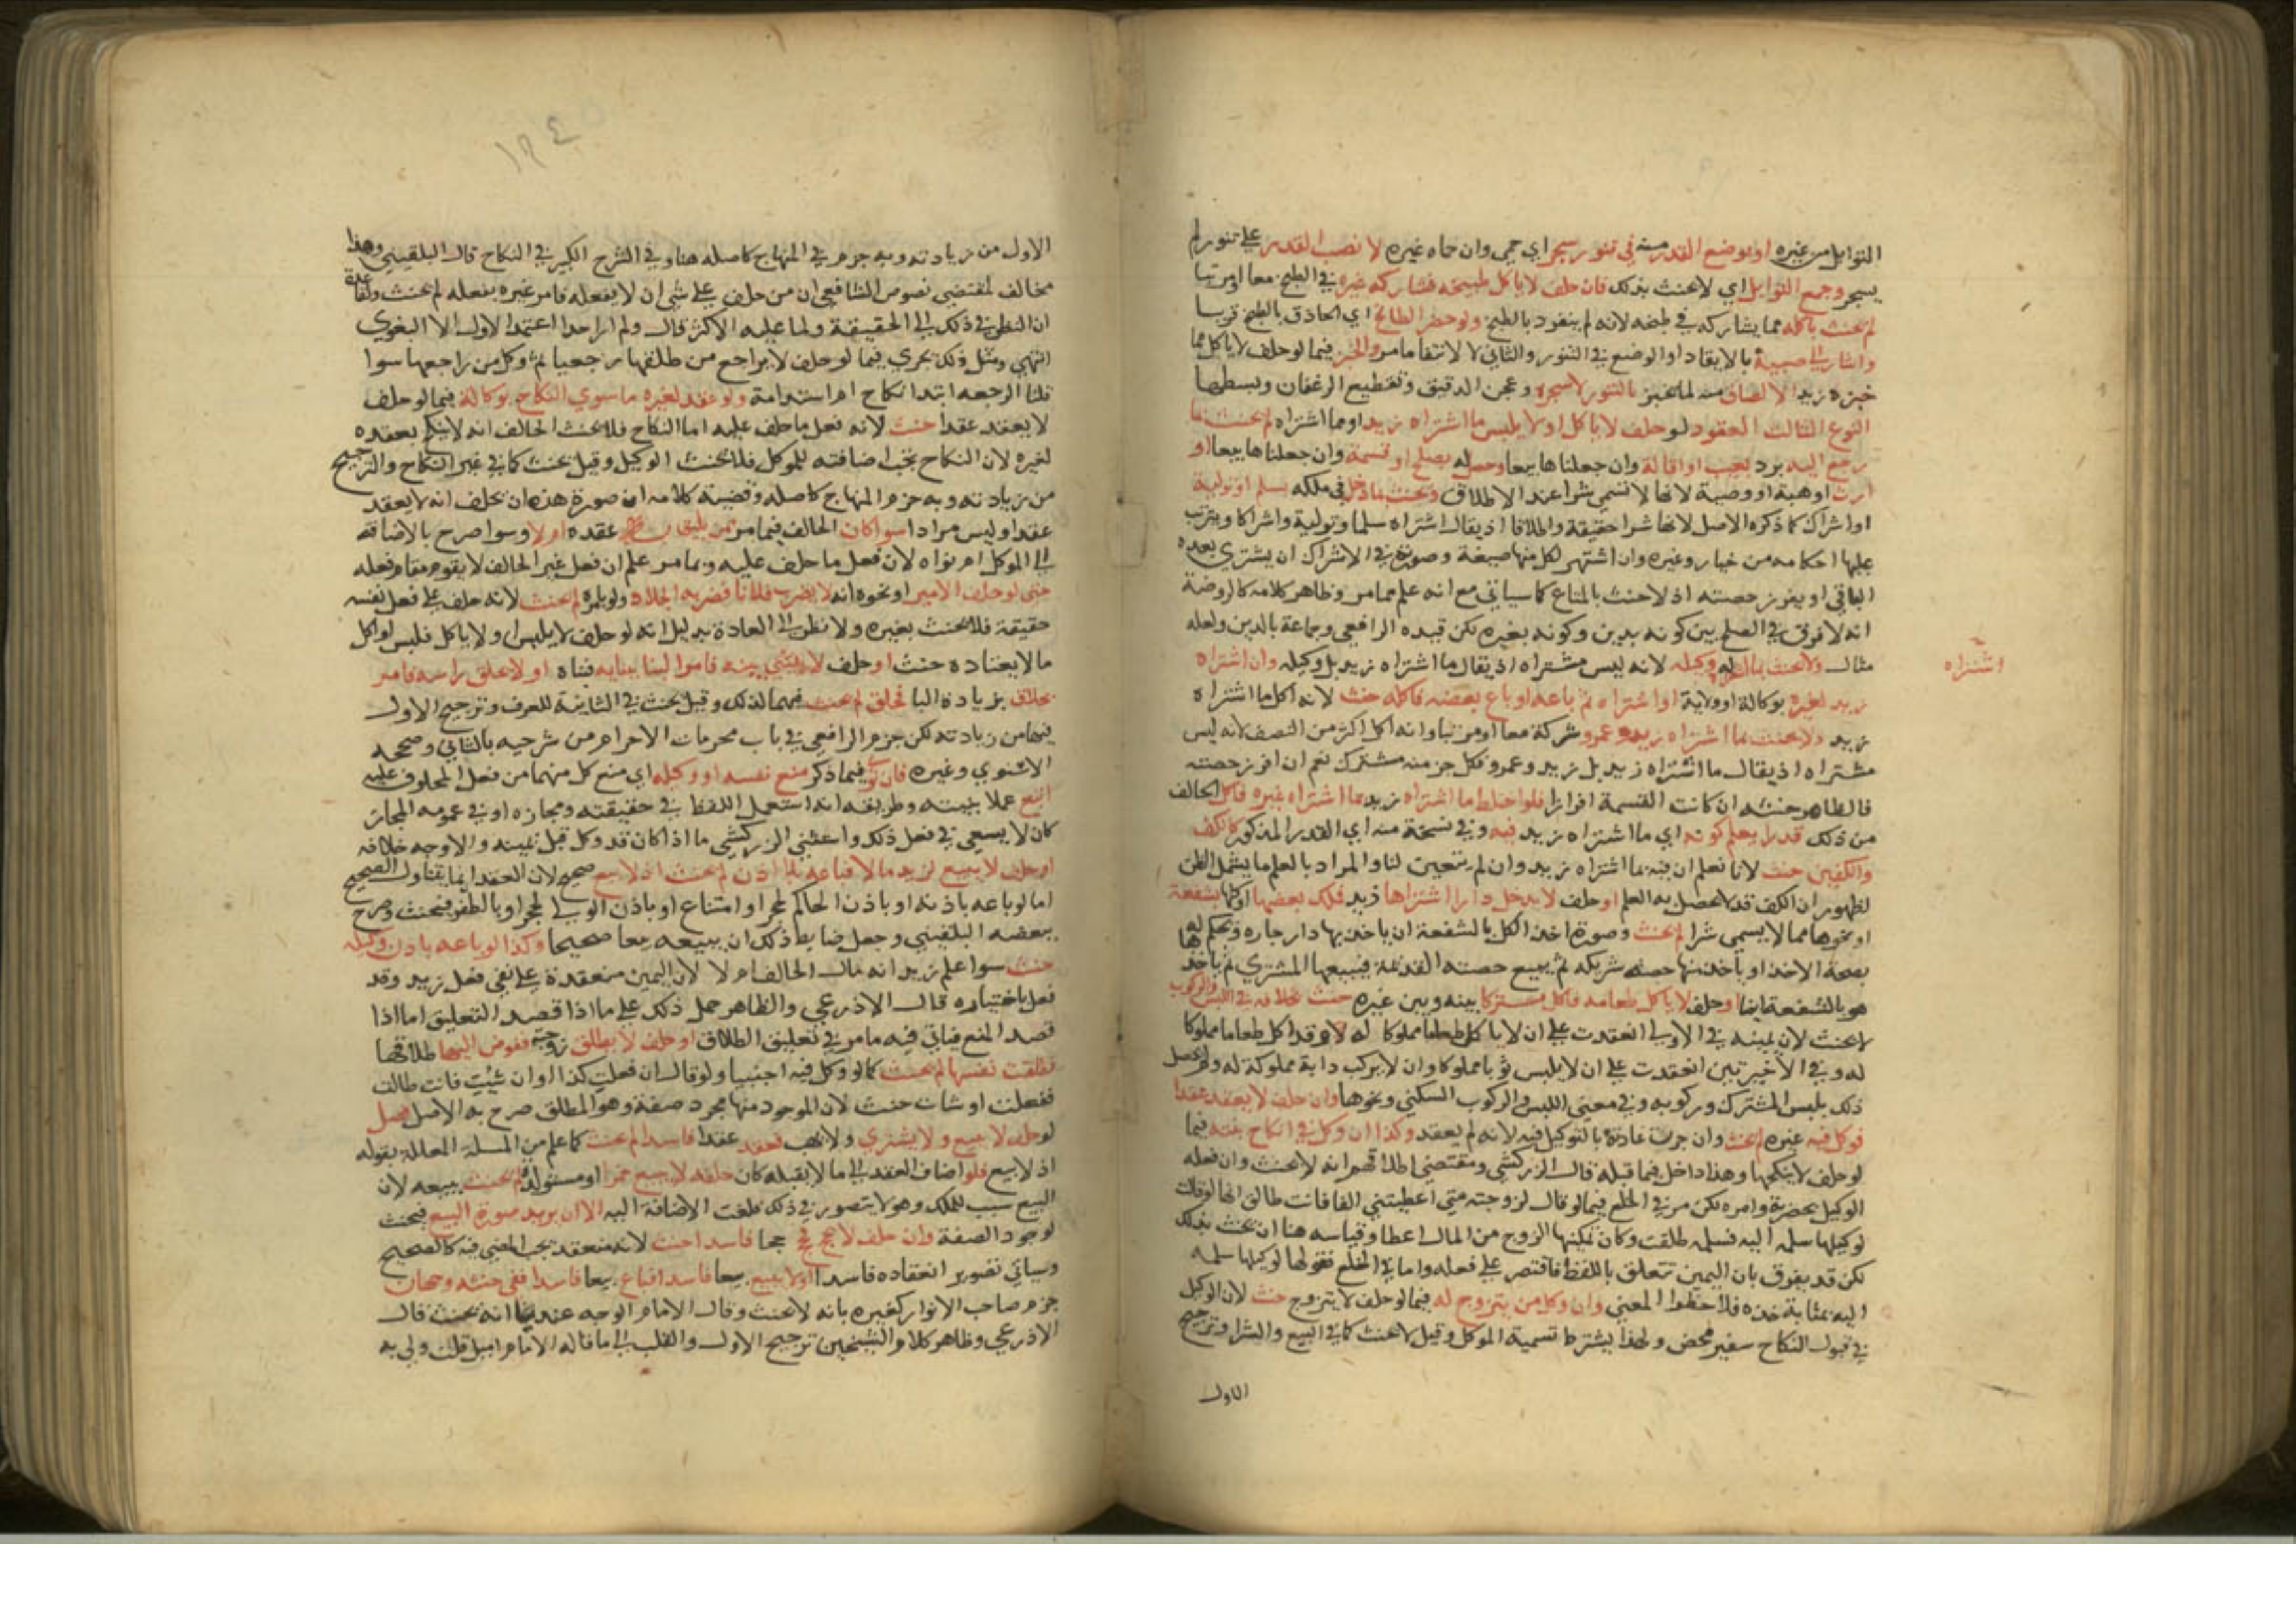 التوابل من غيره او بوضع القدر منه في تنور سجر اي حمي وان حماه غيره لا نصب القدر على تنور لم
يسجر وجمع التوابل اي لا يحنث بذلك فان حلف لا ياكل طبيخه فشاركه غيره في الطبخ معا او مرتبا
لم يحنث باكله مما يشاركه في طبخه لانه لم ينفرد بالطبخ ولو حضر الطابخ اي الحاذق بالطبخ قريبا
واشار الى صبيه بالايقاد او الوضع في التنور والثاني لا لانتفا ما مر والخبز فيما لو حلف لا ياكل مما
خبزه زيد الالصاق منه لما يخبز بالتنور لا سجره وعجن الدقيق وتقطيع الرغفان وبسطها
النوع الثالث العقود لو حلف لا ياكل او لا يلبس ما اشتراه زيد او مما اشتراه لم يحنث بما
رجع اليه برد بعيب او اقالة وان جعلناها بيعا وحصل له بصلح او قسمة وان جعلناها بيعا او
ارث او هبة او وصية لانها لا تسمى شرا عند الاطلاق ويحنث بما دخل في ملكه بسلم او تولية
او اشراك كما ذكره الاصل لانها شرا حقيقة واطلاقا اذ يقال اشتراه سلما وتولية واشراكا ويترتب
عليها احكامه من خيار وغيره وان اشتهر لكل منها صيغة وصورته في الاشراك ان يشتري بعده
الباقي او يفرز حصته اذ لا حنث بالمشاع كما سياتي مع انه علم مما مر وظاهر كلامه كالروضة
انه لا فرق في الصلح بين كونه بدين وكونه بغيره لكن قيده الرافعي وجماعة بالدين ولعله
مثال ولا يحنث بما اشتراه له وكيله لانه ليس مشتراه اذ يقال ما اشتراه زيد بل وكيله وان اشتراه
اشتراه
زيد لغيره بوكالة او ولاية او اشتراه ثم باعه او باع بعضه فاكله حنث لانه اكل ما اشتراه
زيد ولا يحنث بما اشتراه زيد وعمرو شركة معا او مرتبا وانه اكل اكثر من النصف لانه ليس
مشتراه اذ يقال ما اشتراه زيد بل زيد وعمرو فكل جز منه مشترك نعم ان افرز حصته
فالظاهر حنثه ان كانت القسمة افرازا فلو اختلط ما اشتراه زيد بما اشتراه غيره فاكل الحالف
من ذلك قدرا يعلم كونه اي ما اشتراه زيد فيه وفي نسخة منه اي القدر المذكور كالكف
والكفين حنث لانا نعلم ان فيه مما اشتراه زيد وان لم يتعين لنا والمراد بالعلم ما يشمل الظن
لظهور ان الكف قد لا يحصل به العلم او حلف لا يدخل دارا اشتراها زيد فملك بعضها او كلها بشفعة
او نحوها مما لا يسمى شرا لم يحنث وصورة اخذ الكل بالشفعة ان ياخذ بها دار جاره ويحكم له بها
بصحة الاخذ او ياخذ منها حصة شريكه ثم يبيع حصته القديمة فيبيعها المشتري ثم ياخذ
هو بالشفعة ايضا او حلف لا ياكل طعامه فاكل مشتركا بينه وبين غيره حنث بخلافه في اللبس والركوب
لا يحنث لان يمينه في الاولى انعقدت على ان لا ياكل طعاما مملوكا له وقد اكل طعاما مملوكا
له وفي الاخيرتين انعقدت على ان لا يلبس ثوبا مملوكا وان لا يركب دابة مملوكة له ولم يحصل
ذلك بلبس المشترك وركوبه وفي معنى اللبس والركوب السكنى ونحوها وان حلف لا يعقد عقدا
فوكل فيه غيره لم يحنث وان جرت عادته بالتوكيل فيه لانه لم يعقد وكذا ان وكل في انكاح بنته فيما
لو حلف لا ينكحها وهذا داخل فيما قبله قال الزركشي ومقتضى اطلاقهم انه لا يحنث وان فعله
الوكيل بحضرته وامره لكن مر في الخلع فيما لو قال لزوجته متى اعطيتني الفا فانت طالق انها لو قالت
لوكيلها سلمه اليه فسلمه طلقت وكان تمكينها الزوج من المال اعطا وقياسه هنا ان يحنث بذلك
لكن قد يفرق بان اليمين تتعلق باللفظ فاقتصر على فعله واما في الخلع فقولها لوكيلها سلمه
اليه بمثابة خذه فلاحظوا المعنى وان وكل من يتزوج له فيما لو حلف لا يتزوج حنث لان الوكيل
في قبول النكاح سفير محض ولهذا يشترط تسمية الموكل وقيل لا يحنث كما في البيع والشرا وترجيح
الاول
١٢٤٥
الاول من زيادته وبه جزم في المنهاج كاصله هنا وفي الشرح الكبير في النكاح قال البلقيني وهذا
مخالف لمقتضى نصوص الشافعي ان من حلف على شي ان لا يفعله فامر غيره بفعله لم يحنث ولقاعدة
ان النظر في ذلك الى الحقيقة ولما عليه الاكثر قال ولم ار احدا اعتمد الاول الا البغوي
انتهى ومثل ذلك يجري فيما لو حلف لا يراجع من طلقها رجعيا ثم وكل من راجعها سوا
قلنا الرجعه ابتدا نكاح ام استدامة ولو عقد لغيره ما سوى النكاح بوكالة فيما لو حلف
لا يعقد عقدا حنث لانه فعل ما حلف عليه اما النكاح فلا يحنث الحالف انه لا ينكح بعقده
لغيره لان النكاح يجب اضافته للموكل فلا يحنث الوكيل وقيل يحنث كما في غير النكاح والترجيح
من زيادته وبه جزم المنهاج كاصله وقضية كلامه ان صورة هذه ان يحلف انه لا يعقد
عقدا وليس مرادا سوا كان الحالف فيما مر ممن يليق به عقده او لا وسوا صرح بالاضافه
الى الموكل ام نواه لان فعل ما حلف عليه وبما مر علم ان فعل غير الحالف لا يقوم مقام فعله
حتى لو حلف الامير او نحوه انه لا يضرب فلانا فضربه الجلاد ولو بامره لم يحنث لانه حلف على فعل نفسه
حقيقة فلا يحنث بغيره ولا نظر الى العادة بدليل انه لو حلف لا يلبس او لا ياكل فلبس او اكل
ما لا يعتاده حنث او حلف لا يبني بيته فامر البنا ببنايه فبناه او لا يحلق راسه فامر
بحلاق بزيادة البا فحلق لم يحنث فيهما لذلك وقيل يحنث في الثانية للعرف وترجيح الاول
فيها من زيادته لكن جزم الرافعي في باب محرمات الاحرام من شرحيه بالثاني وصححه
الاسنوي وغيره فان نوى فيما ذكر منع نفسه او وكيله اي منع كل منهما من فعل المحلوف عليه
اتبع عملا بنيته وطريقه انه استعمل اللفظ في حقيقته ومجازه او في عموم المجاز
كان لا يسعى في فعل ذلك واستثنى الزركشي ما اذا كان قد وكل قبل يمينه والاوجه خلافه
او حلف لا يبيع لزيد مالا فباعه بلا اذن لم يحنث اذ لا بيع صحيح لان العقد انما يتناول الصحيح
اما لو باعه باذنه او باذن الحاكم لحجر او امتناع او باذن الولي لحجر او بالظفر فيحنث وصرح
ببعضه البلقيني وجعل ضابط ذلك ان يبيعه بيعا صحيحا وكذا لو باعه باذن وكيله
حنث سوا علم زيد انه مال الحالف ام لا لان اليمين منعقدة على نفي فعل زيد وقد
فعل باختياره قال الاذرعي والظاهر حمل ذلك على ما اذا قصد التعليق اما اذا
قصد المنع فياتي فيه ما مر في تعليق الطلاق او حلف لا يطلق زوجته ففوض اليها طلاقها
فطلقت نفسها لم يحنث كما لو وكل فيه اجنبيا ولو قال ان فعلت كذا او ان شيت فانت طالق
ففعلت او شات حنث لان الموجود منها مجرد صفة وهو المطلق صرح به الاصل فصل
لو حلف لا يبيع ولا يشتري ولا يهب فعقد عقدا فاسدا لم يحنث كما علم من المسلة المعللة بقوله
اذ لا بيع فلو اضاف العقد الى ما لا يقبله كان حلف لا يبيع خمرا او مستولدة لم يحنث ببيعه لان
البيع سبب للملك وهو لا يتصور في ذلك فلغت الاضافة اليه الا ان يريد صورة البيع فيحنث
لوجود الصفة وان حلف لا يحج فحج حجا فاسدا حنث لانه منعقد يجب المضي فيه كالصحيح
وسياتي تصوير انعقاده فاسدا او لا يبيع بيعا فاسدا فباع بيعا فاسدا ففي حنثه وجهان
جزم صاحب الانوار كغيره بانه لا يحنث وقال الامام الوجه عندنا انه يحنث قال
الاذرعي وظاهر كلام الشيخين ترجيح الاول والقلب الى ما قاله الامام اميل قلت ولي به